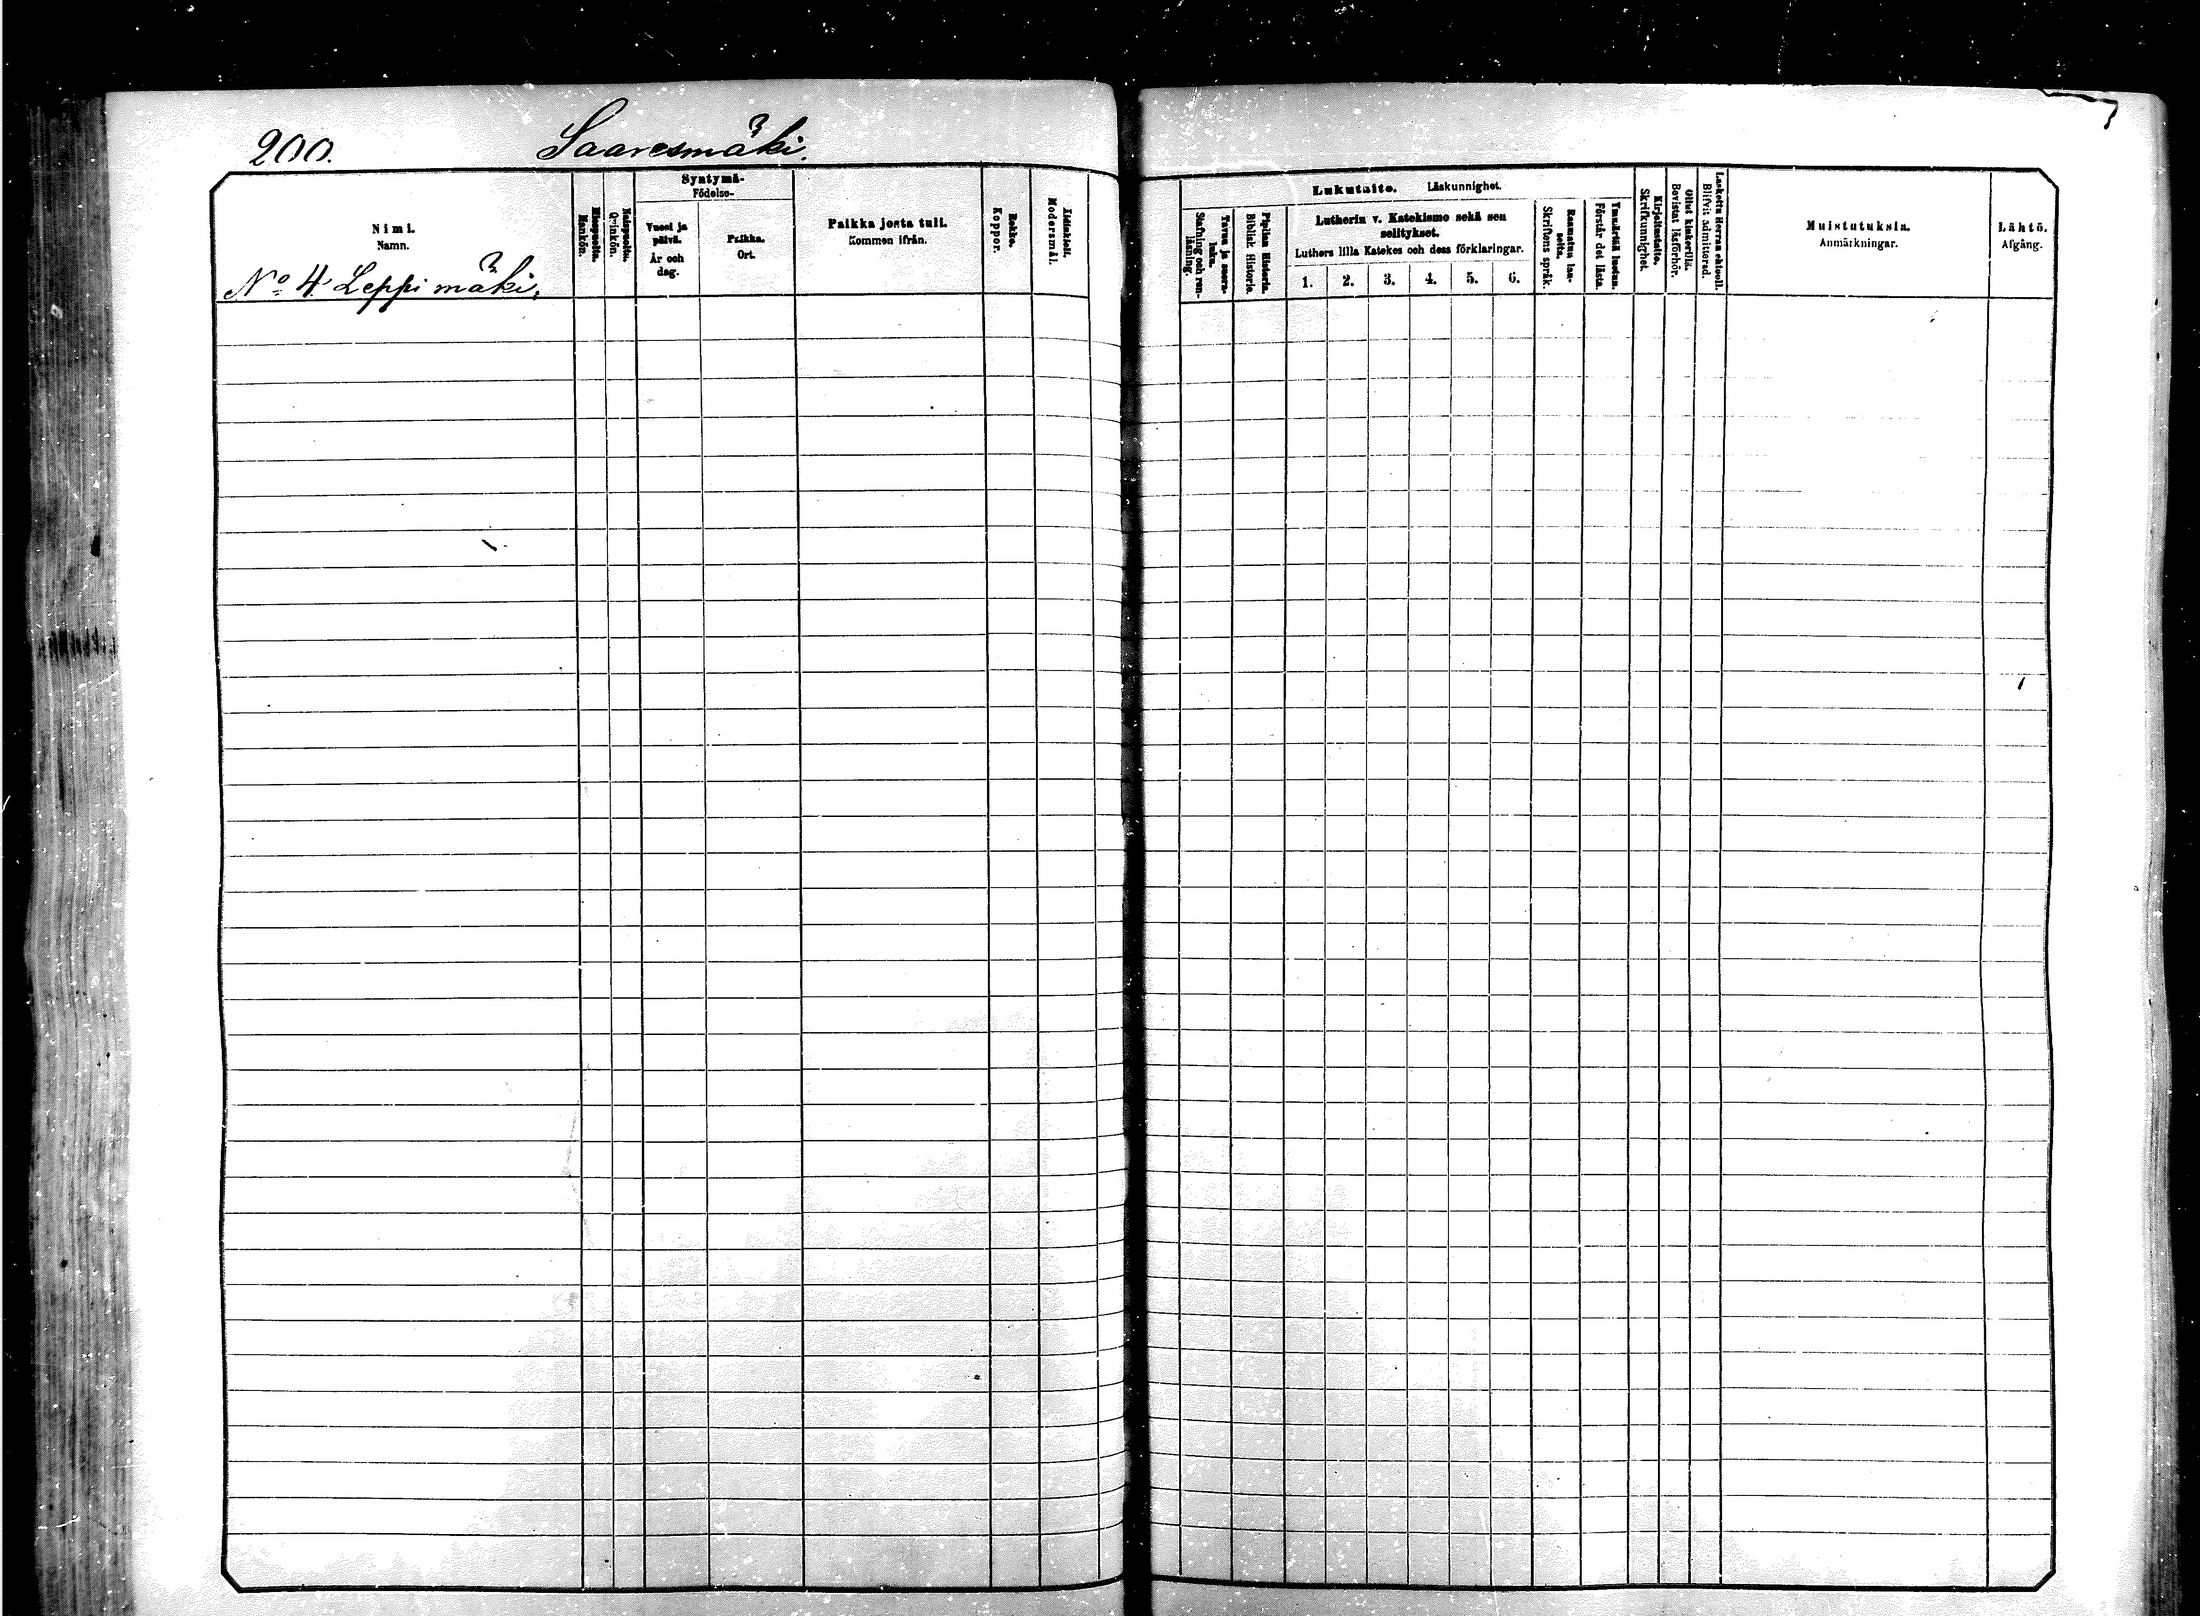 200. Saaresmäki.
Nimi.
Namn.
No 4 Leppimäki.
Miespuolia.
Mankön.
Naispuolia.
Qvinkön.
Syntymä-
Födelse-
Vuosi ja
päivä.
År och
dag.
Paikka.
Ort.
Paikka josta tuli.
Kommen ifrån.
Rokko.
Koppor.
Äidinkieli.
Modersmål.
Lukutaito. Läskunnighet.
Tavuu ja suora-
luku.
Stafning och ren-
läsning.
Piplian Historia.
Biblisk Historie.
Lutherin v. Katekismo sekä sen
selitykset.
Luthers lilla Katekes och dess förklaringar.
1. 2. 3. 4. 5. 6.
Raamatun lau-
seita.
Skriftens språk.
Ymmärtää luetun.
Förstår det lästa.
Kirjoitustaito.
Skrifkunnighet.
Ollut kinkerillä.
Bevistat läsförhör.
Laskettu Herran ehtooll.
Blifvit admitterad.
Muistutuksia.
Anmärkningar.
Lähtö.
Afgång.